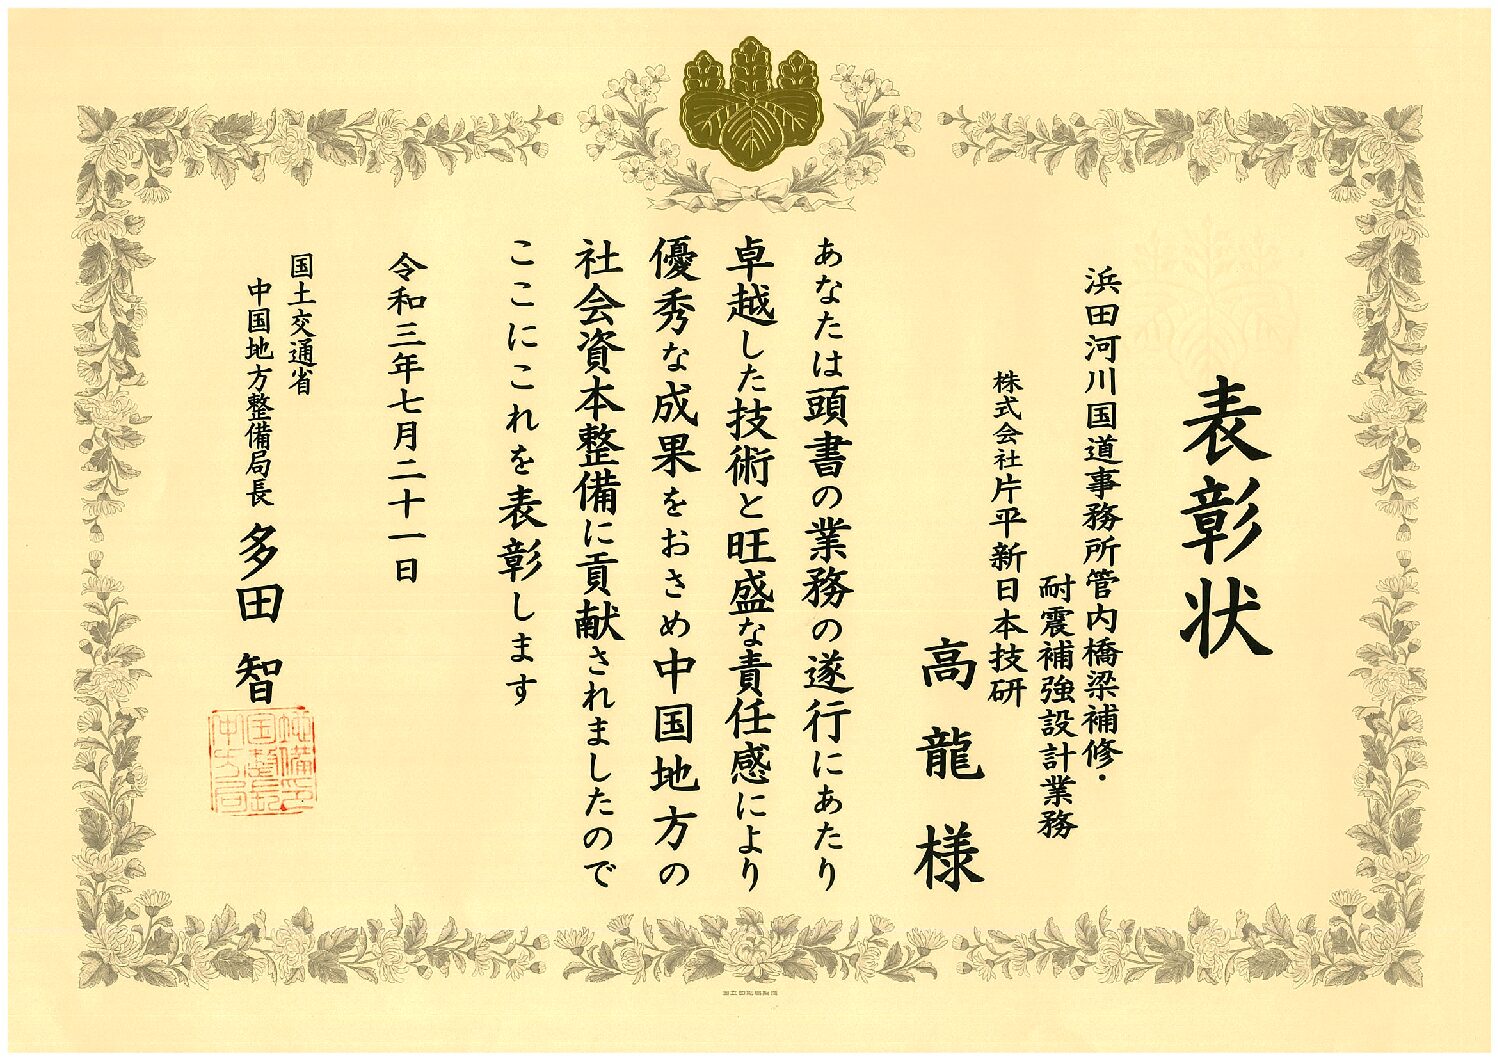 表彰状
浜田河川国道事務所管内橋梁補修・
耐震補強設計業務
株式会社片平新日本技研
高龍様
あなたは頭書の業務の遂行にあたり
卓越した技術と旺盛な責任感により
優秀な成果をおさめ中国地方の
社会資本整備に貢献されましたので
ここにこれを表彰します
令和三年七月二十一日
国土交通省
中国地方整備局長 多田 智